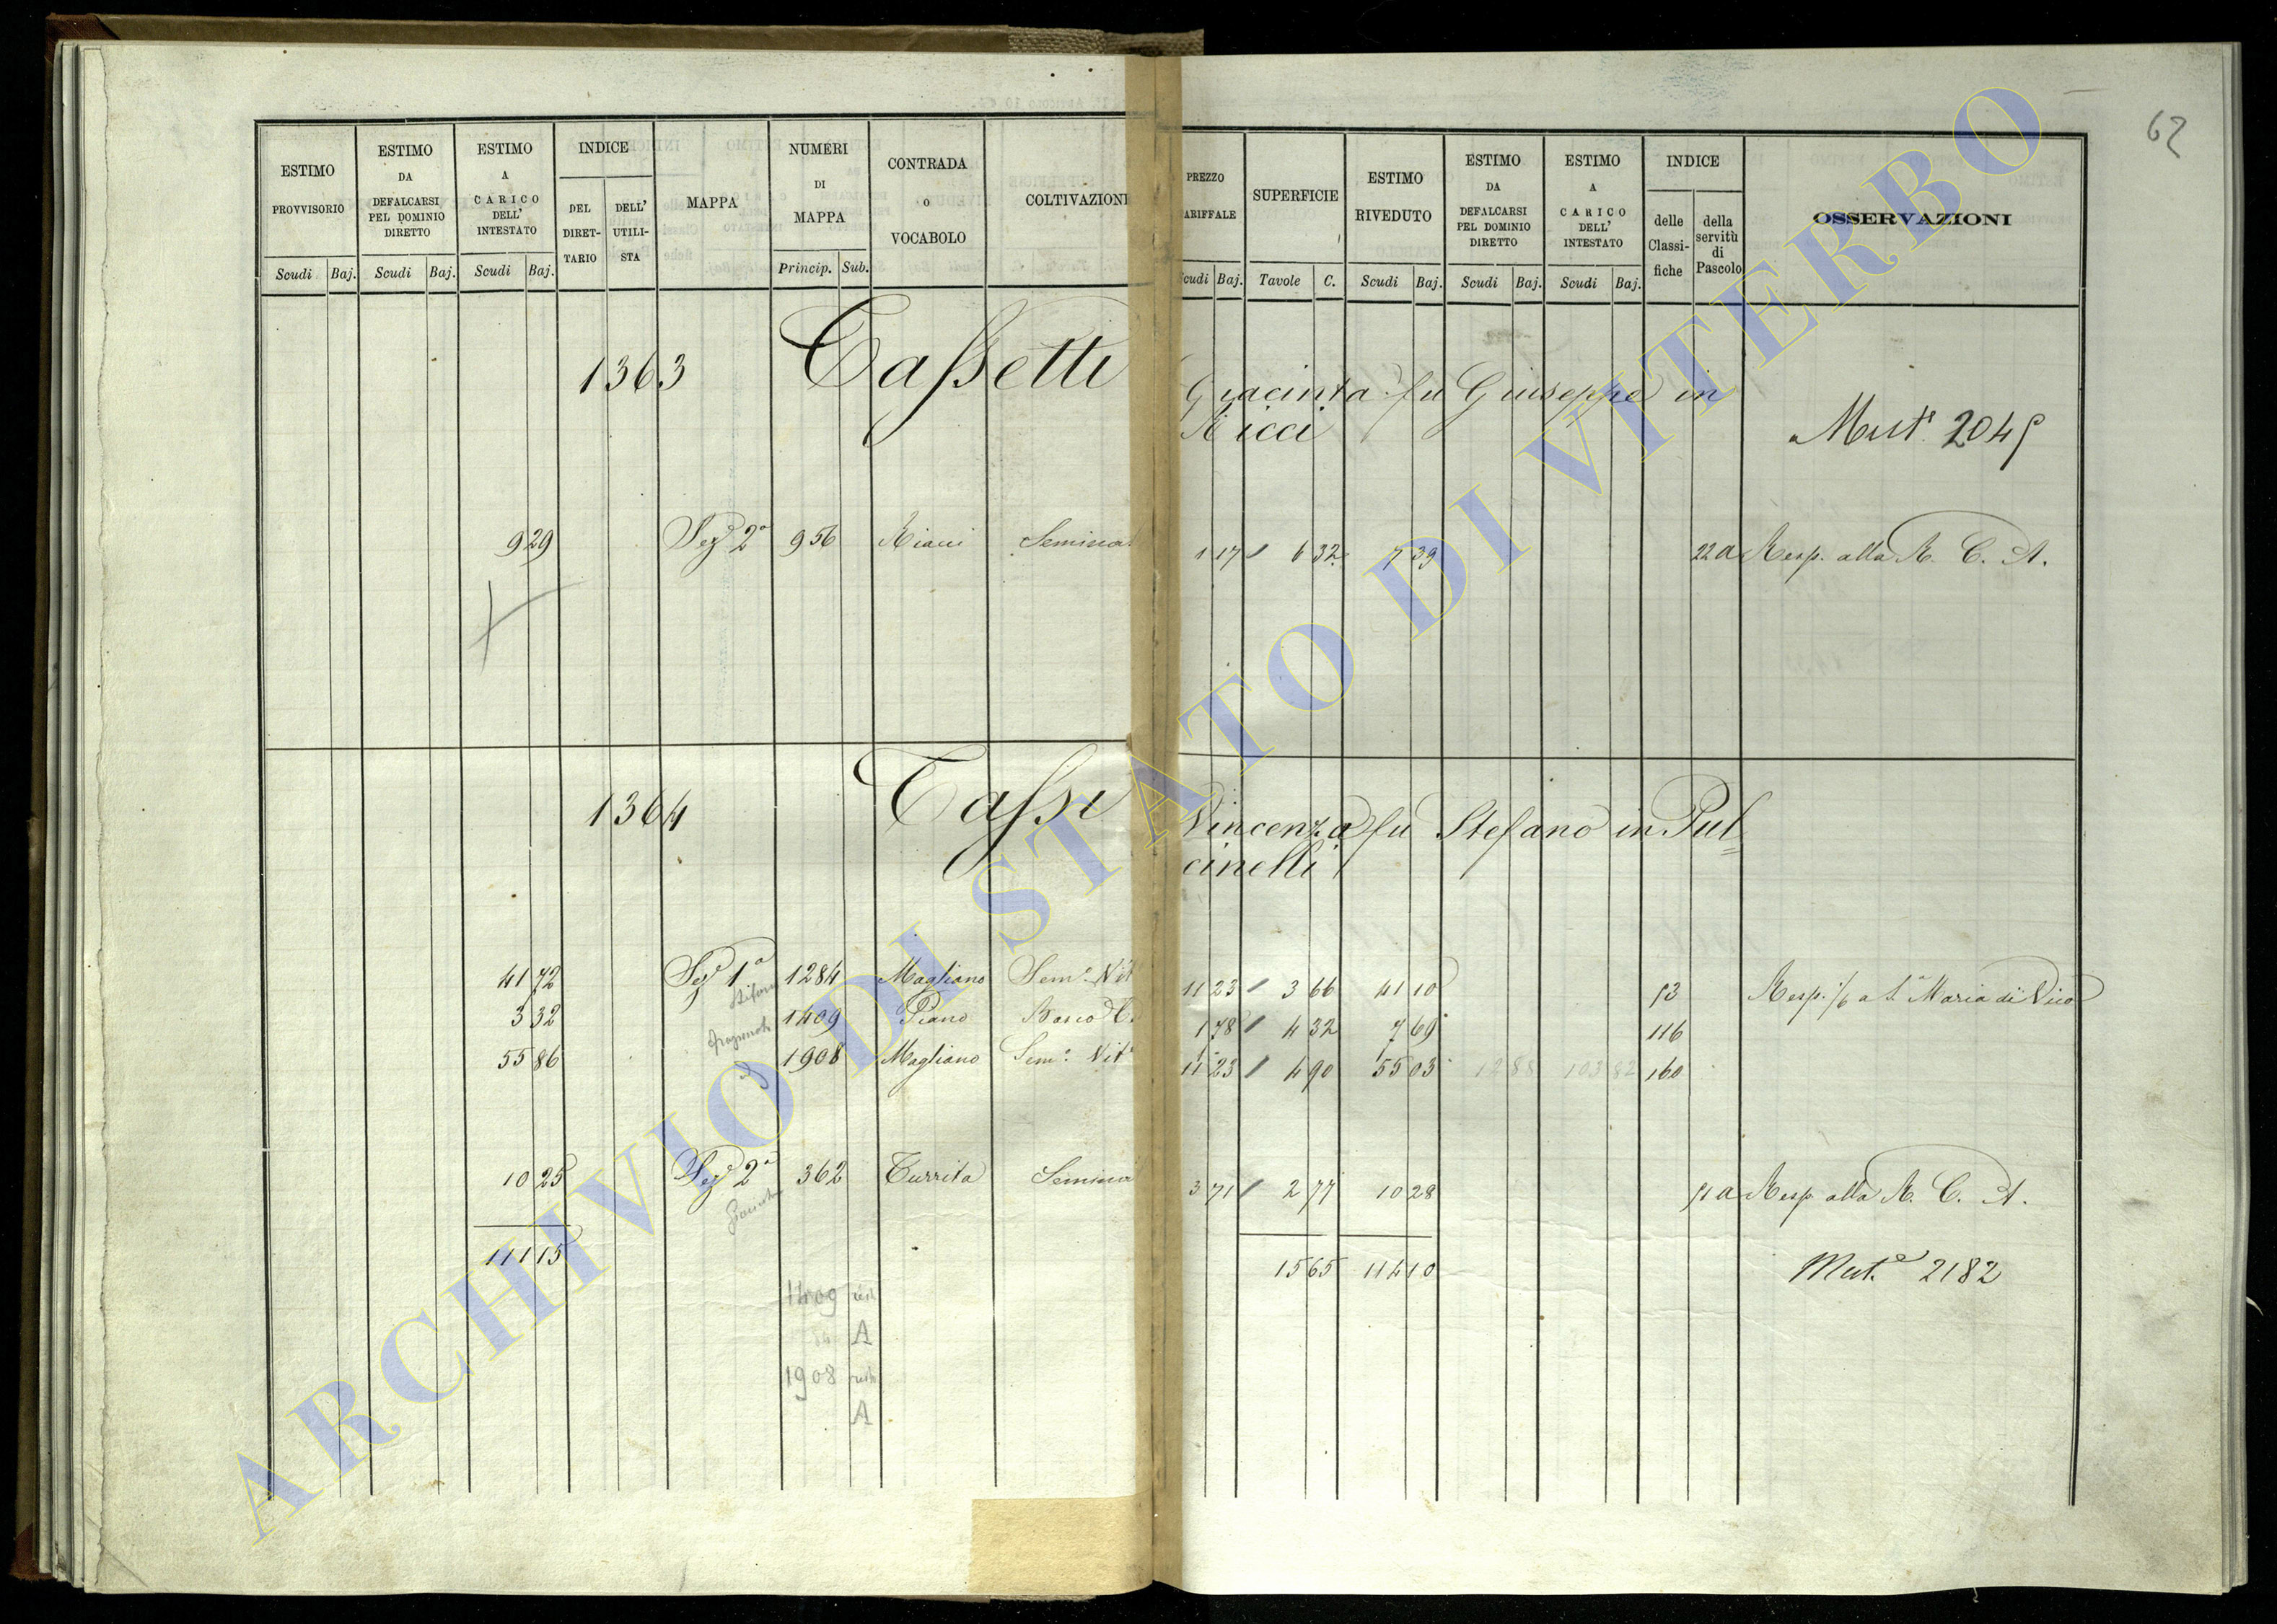 62
ESTIMO PROVVISORIO Scudi Baj.
ESTIMO DA DEFALCARSI PEL DOMINIO DIRETTO Scudi Baj.
ESTIMO A CARICO DELL' INTESTATO Scudi Baj.
INDICE DEL DIRET-TARIO DELL' UTILI-STA
MAPPA
NUMERI DI MAPPA Princip. Sub.
CONTRADA O VOCABOLO
COLTIVAZION
PREZZO ARIFFALE cudi Baj.
SUPERFICIE Tavole C.
ESTIMO RIVEDUTO Scudi Baj.
ESTIMO DA DEFALCARSI PEL DOMINIO DIRETTO Scudi Baj.
ESTIMO A CARICO DELL' INTESTATO Scudi Baj.
INDICE delle Classi-fiche della servitù di Pascolo
OSSERVAZIONI
1363 Tassetti Giacinta fu Giuseppe in
Ricci
Mut.e 2045
9 29 Sez.e 2a 956 Riacci Seminat 1 17 6 32 7 39 22a Resp. alla R. C. A.
1364 Tassi Vincenza fu Stefano in Pul=
cinelli
41 72 Sez.e 1a 1284 Magliano Sem.o Vit 11 23 3 66 41 10 53 Resp. a S.a Maria di Vico
3 32 1409 Piano Bosco C. 1 78 4 32 7 69 116
55 86 1908 Magliano Sem.o Vit.o 11 23 4 90 55 03 12 88 103 82 160
10 25 Sez.e 2a 362 Turrita Semina 3 71 2 77 10 28 51a Resp. alla R. C. A.
111 15 15 65 114 10 Mut.e 2182
1409
A
1908
A
ARCHIVIO DI STATO DI VITERBO